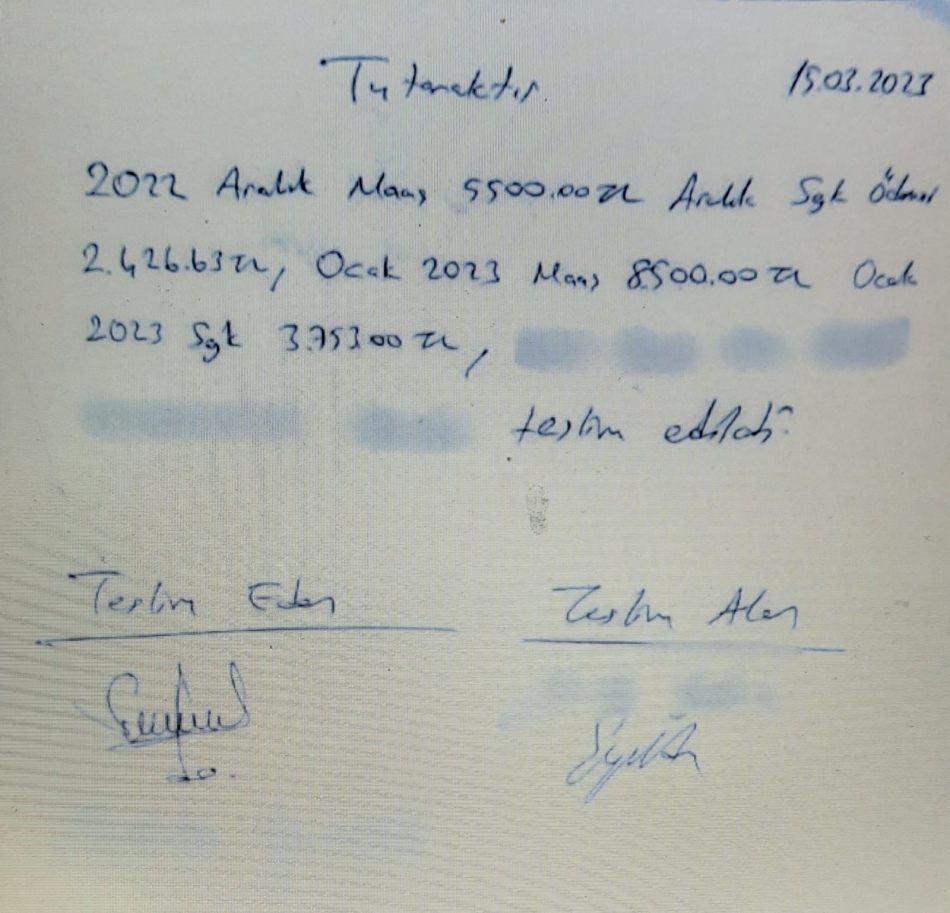 Tutanaktır 15.03.2023
2022 Aralık Maaş 5500.00 TL Aralık Sgk Ödemesi
2.426.63 TL, Ocak 2023 Maaş 8500.00 TL Ocak
2023 Sgk 3.753.00 TL,
teslim edildi.
Teslim Eden Teslim Alan